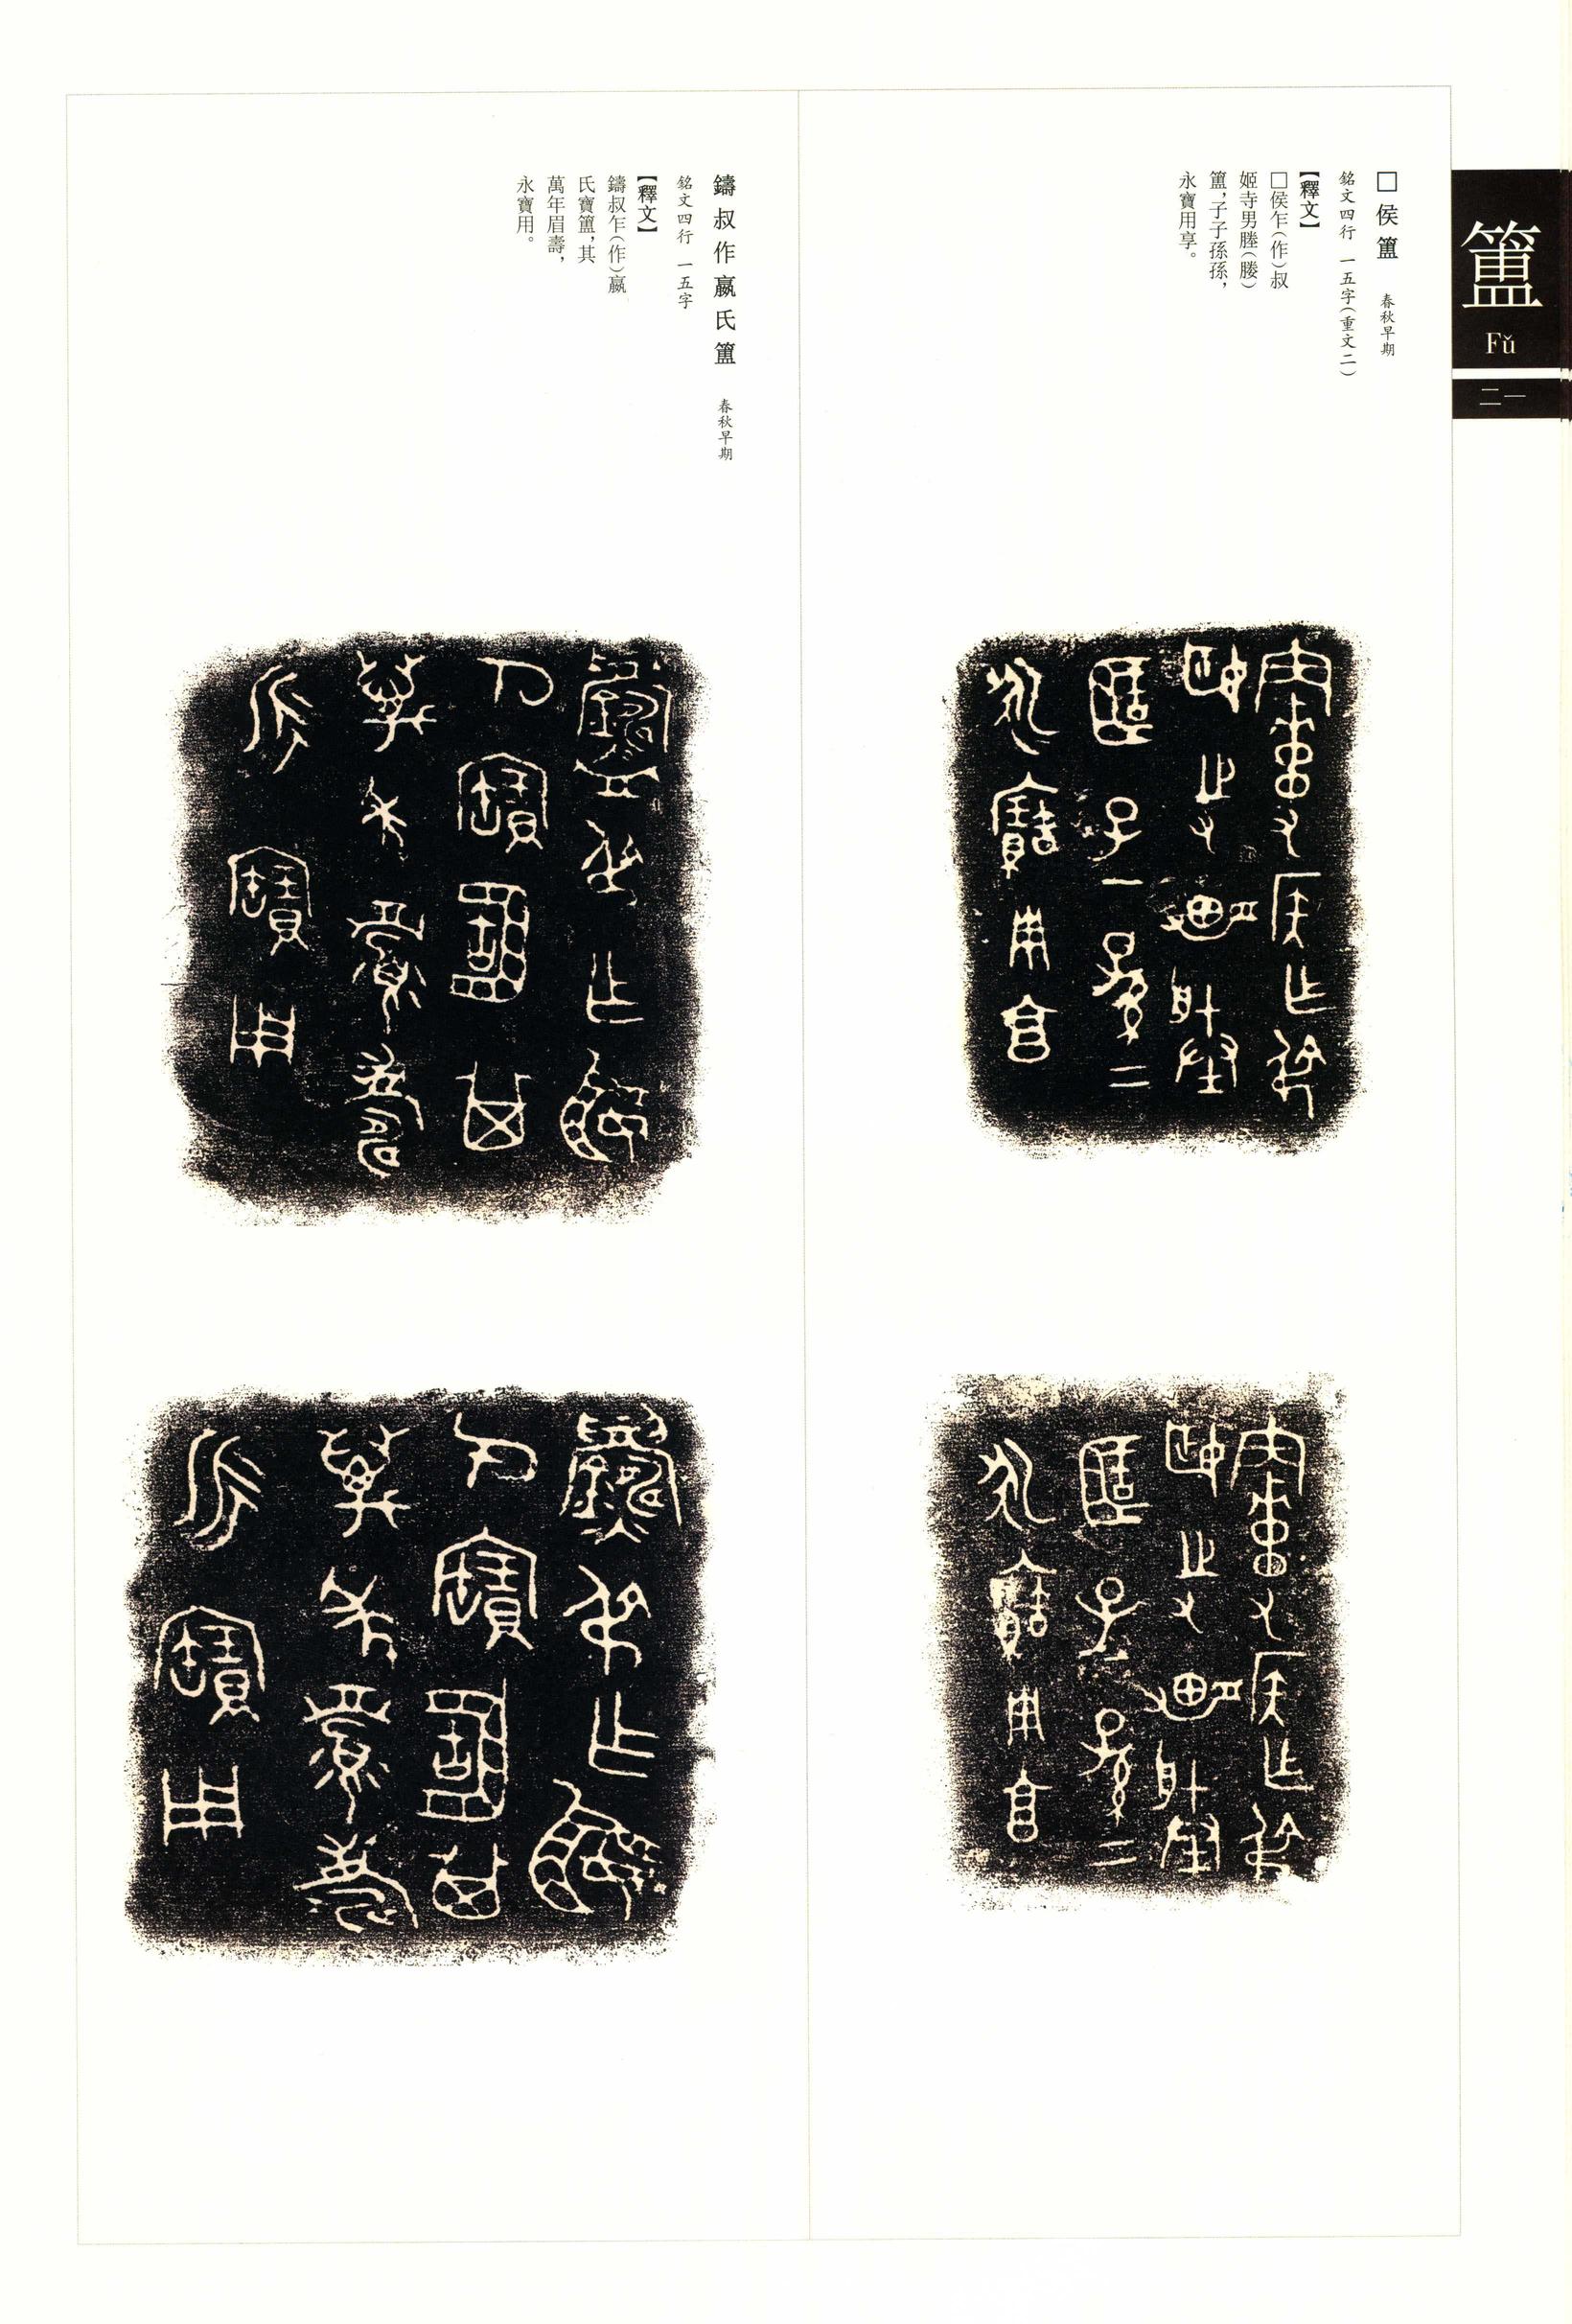 簠
Fǔ
二一
□侯簠 春秋早期
銘文四行 一五字(重文二)
【釋文】
□侯乍(作)叔
姬寺男塍(媵)
簠,子子孫孫,
永寶用享。
鑄叔作嬴氏簠 春秋早期
銘文四行 一五字
【釋文】
鑄叔乍(作)嬴
氏寶簠,其
萬年眉壽,
永寶用。